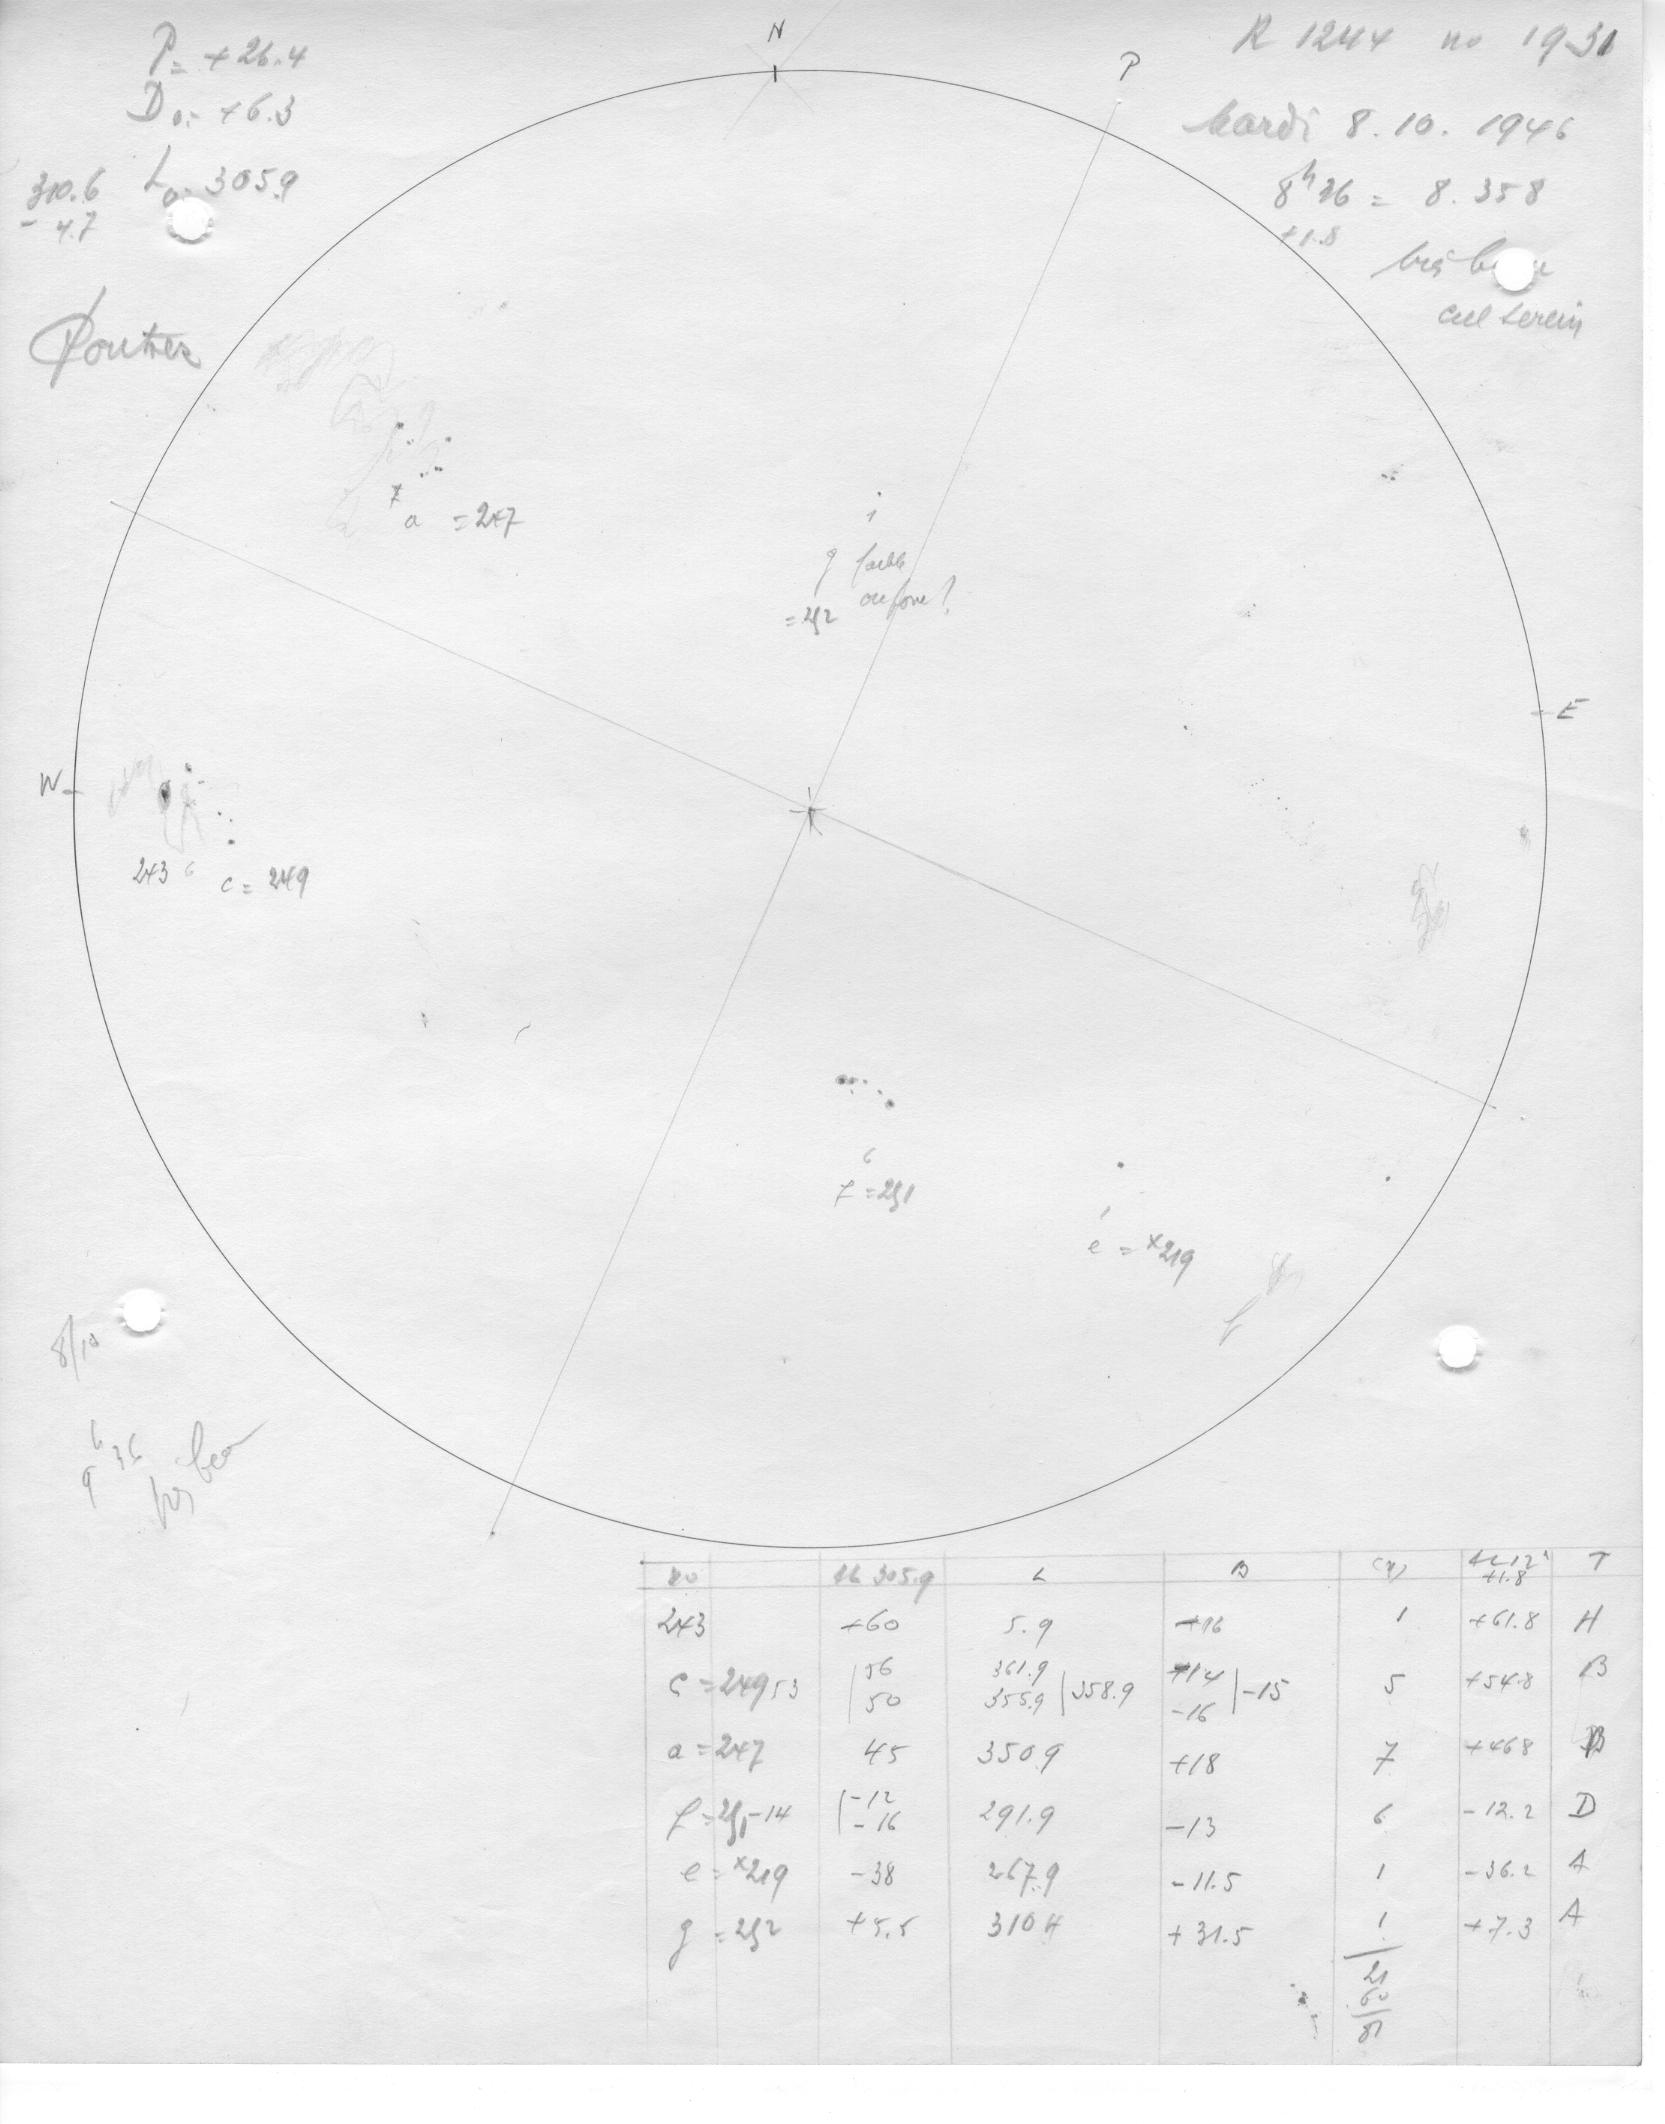 P = +26.4
D o = +6.3
310.6 Lo = 305.9
- 4.7
N
P
R 1244 no 1931
Mardi 8.10.1946
8h36 = 8.358
+1.8
très
ciel serein
7
a = 247
1
g faible
= 252
W
E
243 6 c = 249
6
f = 251
1
e = x219
8/10
h
9 36
no 305.9 L B (n) +1.8 T
243 +60 5.9 -16 1 +61.8 H
c = 249 53 56 361.9 -14 5 +54.8 B
50 355.9 358.9 -16 -15
a = 247 45 350.9 +18 7 +46.8 B
f = 251 -14 -12 291.9 -13 6 -12.2 D
-16
e = x219 -38 267.9 -11.5 1 -36.2 A
g = 252 +5.5 +31.5 1 +7.3 A
21
60
81